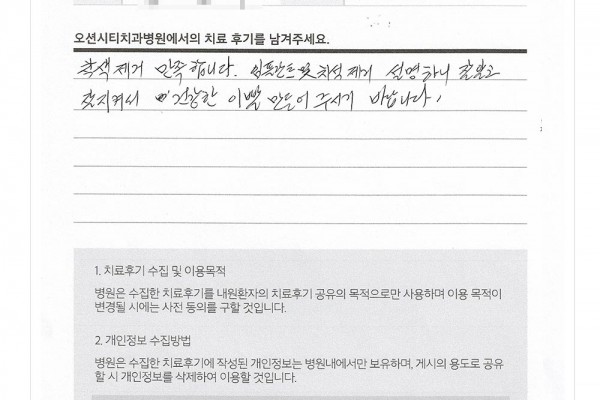 오션시티치과병원에서의 치료 후기를 남겨주세요.
착색 제거 만족합니다. 임프란트 및 치석 제거 설명하니 잘알고
잘지켜서 건강한 이빨 만들어 주시기 바랍니다.
1. 치료후기 수집 및 이용목적
병원은 수집한 치료후기를 내원환자의 치료후기 공유의 목적으로만 사용하며 이용 목적이
변경될 시에는 사전 동의를 구할 것입니다.
2. 개인정보 수집방법
병원은 수집한 치료후기에 작성된 개인정보는 병원내에서만 보유하며, 게시의 용도로 공유
할 시 개인정보를 삭제하여 이용할 것입니다.